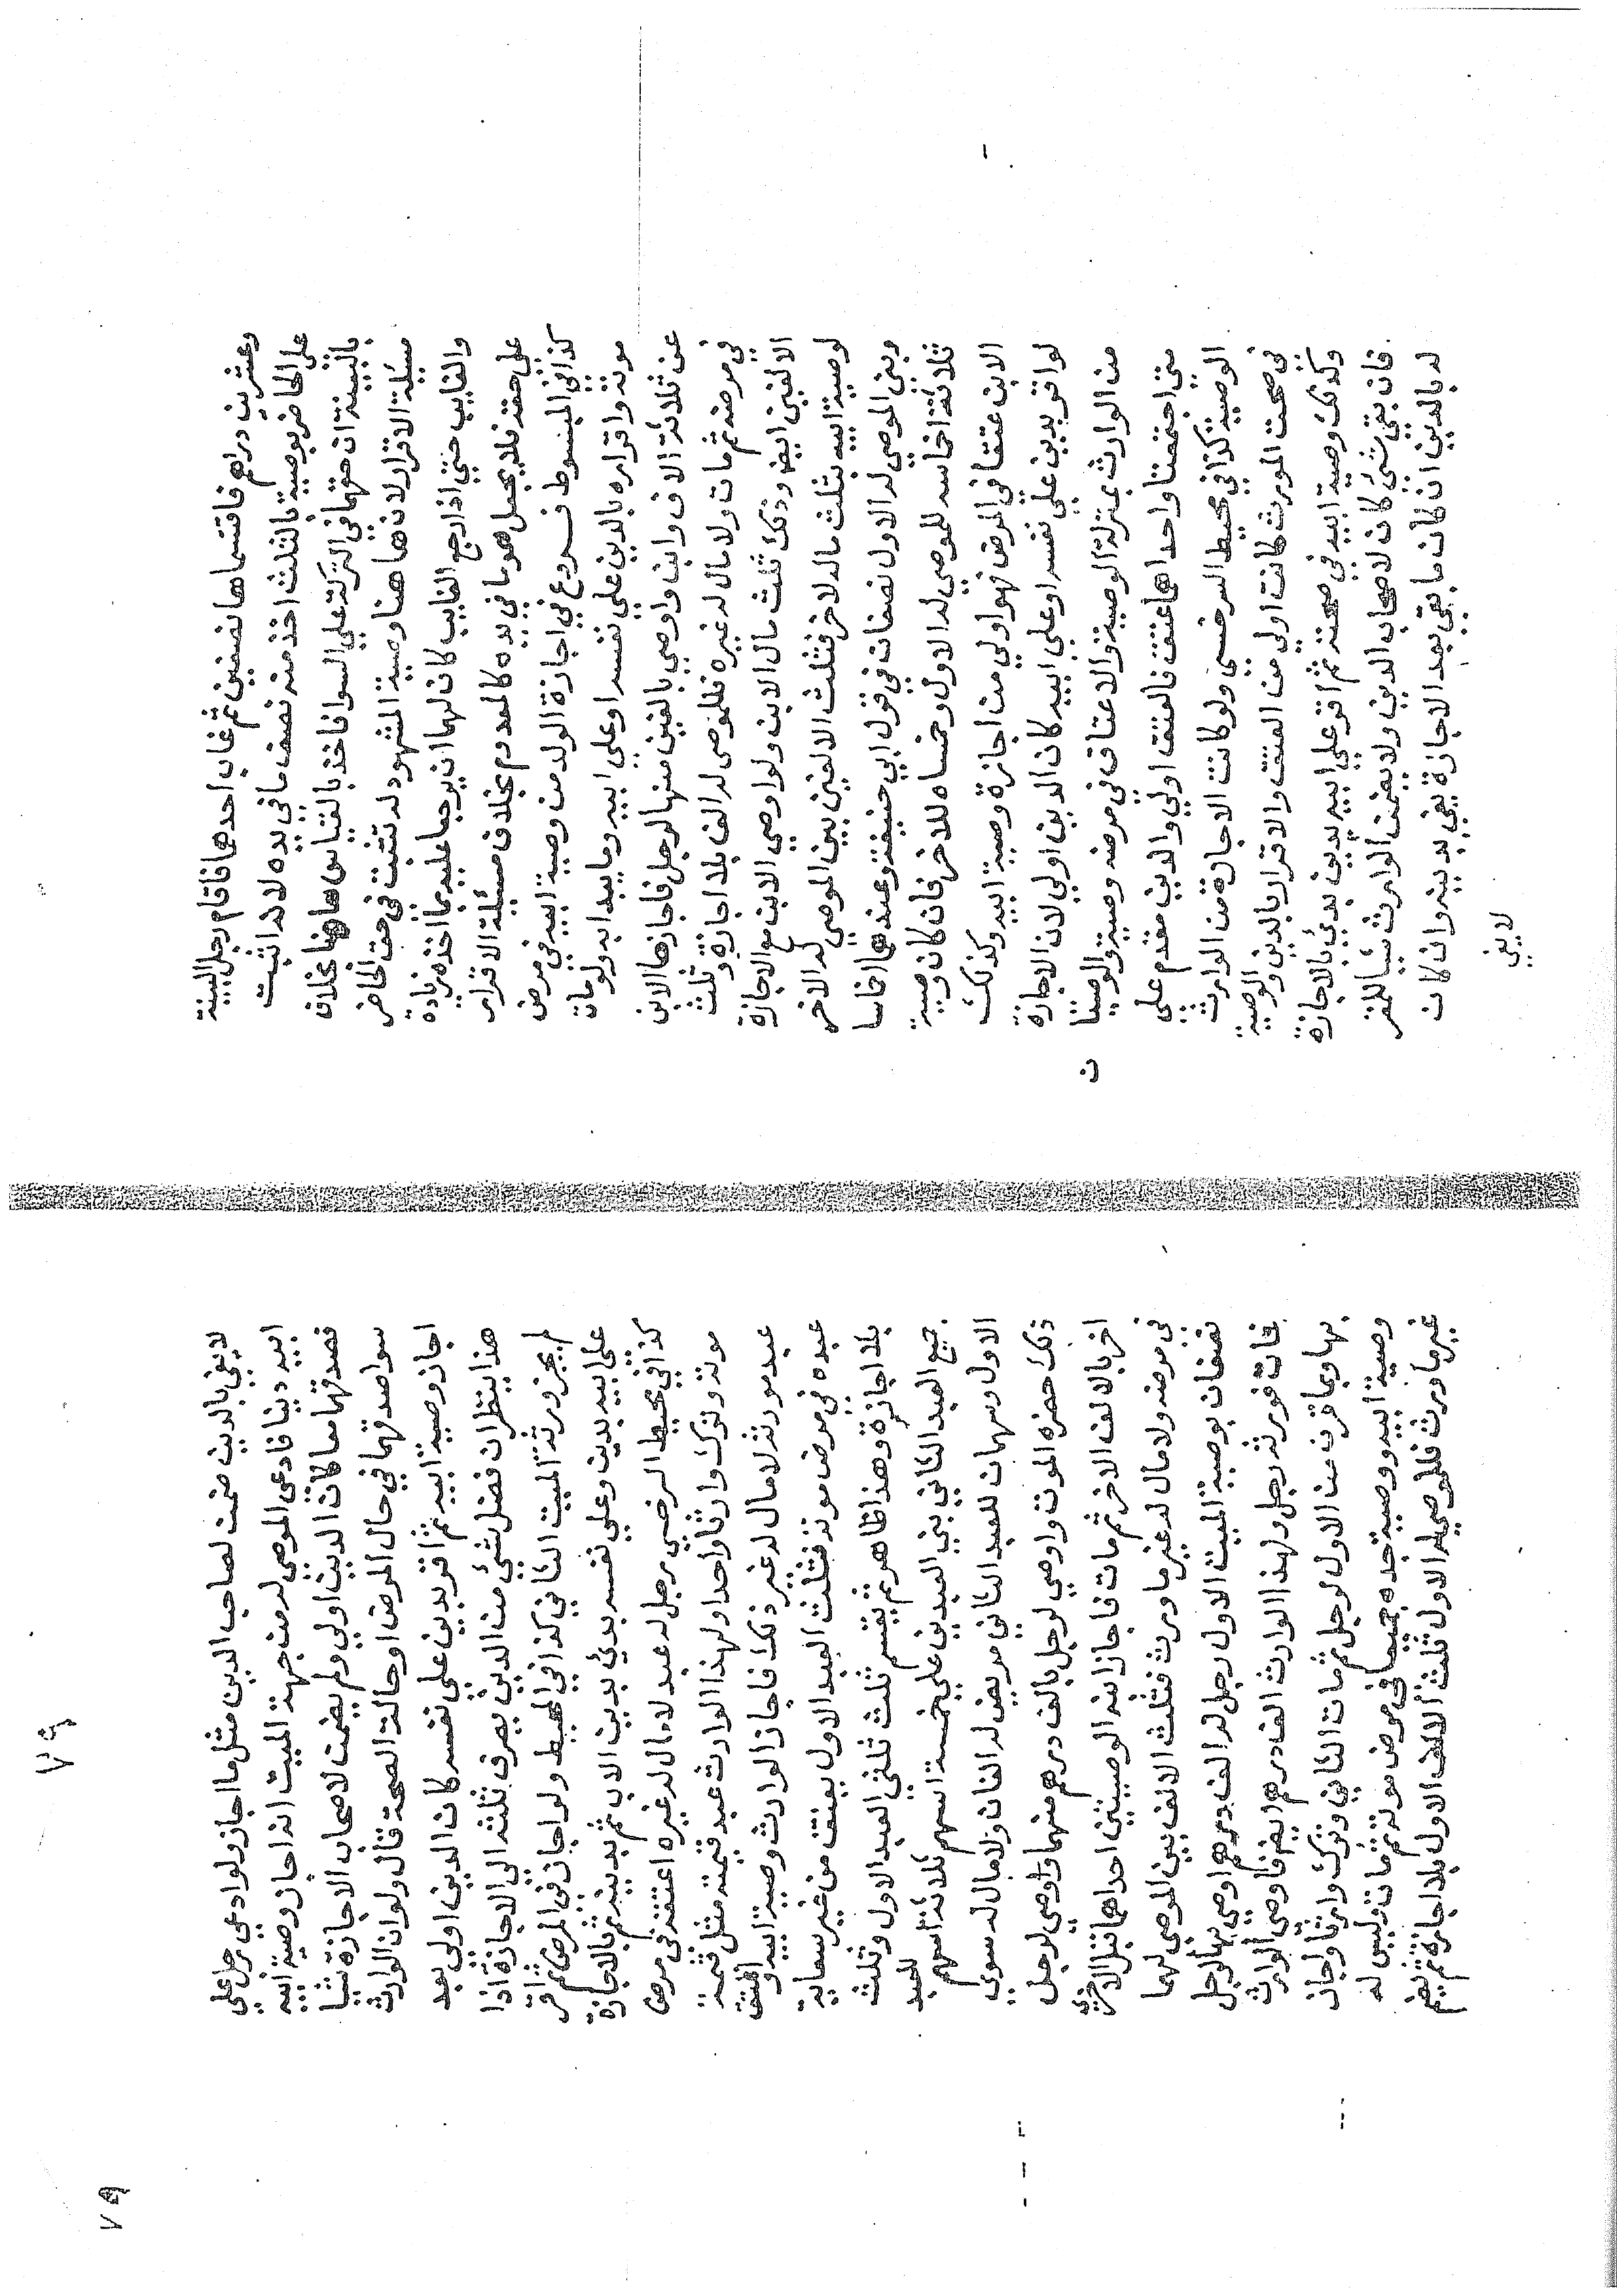 وعشرين دراهم فاقتسماها نصفين ثم غاب احدهما فاقام رجل البينة
على الحاضر بوصية بالثلث اخذ منه نصف ما في يده لانه اثبت
بالبينة ان حقهما في التركة علي السوا فاخذ بالقياس هاهنا بخلاف
مسيلة الاقرار لان هاهنا وصية المشهود له تثبت في حق الحاضر
والغايب حتي اذا رجع الغايب كان لهما ان يرجعا عليه بما اخذه زيادة
علي حقه فلا يجعل هو ما في يده كالمعدوم بخلاف مسيلة الاقرار
كذا في المبسوط فروع في اجازة الولد من وصية ابيه في مرض
موته واقراره بالدين علي نفسه او علي ابيه وما يبدا به ولو مات
عن ثلاثة الاف وابن واوصي بالفين منها لرجل فاجازها الابن
في مرضه ثم مات ولا مال له غيره فللموصى له الف بلا اجازة وثلث
الالفين ايضا وذلك ثلث مال الابن ولو اوصي الابن مع الاجازة
لوصية ابيه بثلث ماله لاخر فثلث الالفين بين الموصي له الاخر
وبين الموصي له الاول نصفان في قول ابي حنيفة وعندهما اخماسا
ثلاثة اخماسه للموصي له الاول وخمساه للاخر فان كان وصية
الابن عتقا في المرض فهو اولي من اجازة وصية ابيه وكذلك
لو اقر بدين علي نفسه او علي ابيه كان الدين اولي لان الاجازة
من الوارث بمنزلة الوصية والاعتاق في مرضه وصية والوصيتا
ن
متي اجتمعتا واحداهما عتق فالعتق اولي والدين مقدم علي
الوصية كذا في محيط السرخسي ولو كانت الاجازة من الوارث
في صحت المورث كانت اولي من العتق والاقرار بالدين والوصية
وكذلك وصية ابيه في صحته ثم اقر علي ابيه بدين بدئ بالاجازة
فان بقى شئ كان لاصحاب الدين ولا يضمن الوارث شيا للمقر
له بالدين ان كان ما بقي بعد الاجازة يفي بدينه وان كان
لا يفي
٧٩
لا يفي بالدين ضمن لصاحب الدين مثل ما اجاز ولو ادعي رجل علي
ابيه دينا فادعى الموصى له من جهة الميت انه اجاز وصية ابيه
فصدقهما معا كان الدين اولي ولم يضمن لاصحاب الاجازة شيا
سوا صدقهما في حال المرض او حالة الصحة قال ولو ان الوارث
اجاز وصية ابيه ثم اقر بدين علي نفسه كان الدين اولى بعد
هذا ينظر ان فضل شي من الدين يصرف ثلثه الي الاجازة اذا
لم يجز ورثة الميت الثاني كذا في المحيط ولو اجاز في المرض ثم اقر
على ابيه بدين وعلي نفسه بدئ بدين الاب ثم بدينه ثم بالاجازة
كذا في محيط السرخسي رجل له عبد لا مال له غيره اعتقه في مرض
موته وترك وارثا واحدا ولهذا الوارث عبد قيمته مثل قيمة
عبد مورثه لا مال له غير ذلك فاجاز الوارث وصية ابيه واعتق
عبده في مرض موته فثلث العبد الاول يعتق من غير سعاية
بلا اجازة وهذا ظاهر ثم يقسم ثلث ثلثي العبد الاول وثلث
جميع العبد الثاني بين العبدين علي خمسة اسهم ثلاثة اسهم للعبد
الاول وسهمان للعبد الثاني مريض له الفان ولا مال له سوى
ذلك حضره الموت واوصي لرجل بالف درهم منهما واوصي لرجل
اخر بالالف الاخر ثم مات فاجاز ابنه الوصيتين احداهما قبل الاخرى
في مرضه ولا مال له غير ما ورث فثلث الالف بين الموصي لهما
نصفان بوصية الميت الاول رجل له الف درهم اوصي بها لرجل
فمات فورثه رجل ولهذا الوارث الف درهم ايضا فاوصي الوارث
بها وبما ورث من الاول لرجل ثم مات الثاني وترك وارثا واجاز
وصية ابيه ووصية جده جميعا في مرض موته ثم مات وليس له
غير ما ورث فللموصي له الاول ثلث الالف الاول بلا اجازة ثم يضم
٧٩